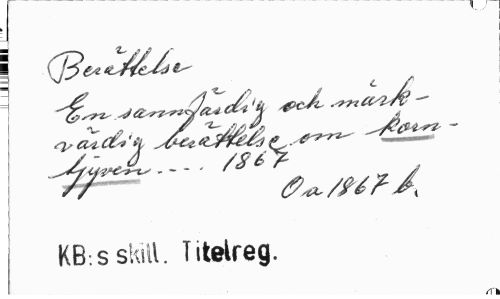 Berättelse
En sannfärdig och märk-
värdig berättelse om korn-
tjyven .... 1867
Oa 1867 b.
KB:s skill. Titelreg.